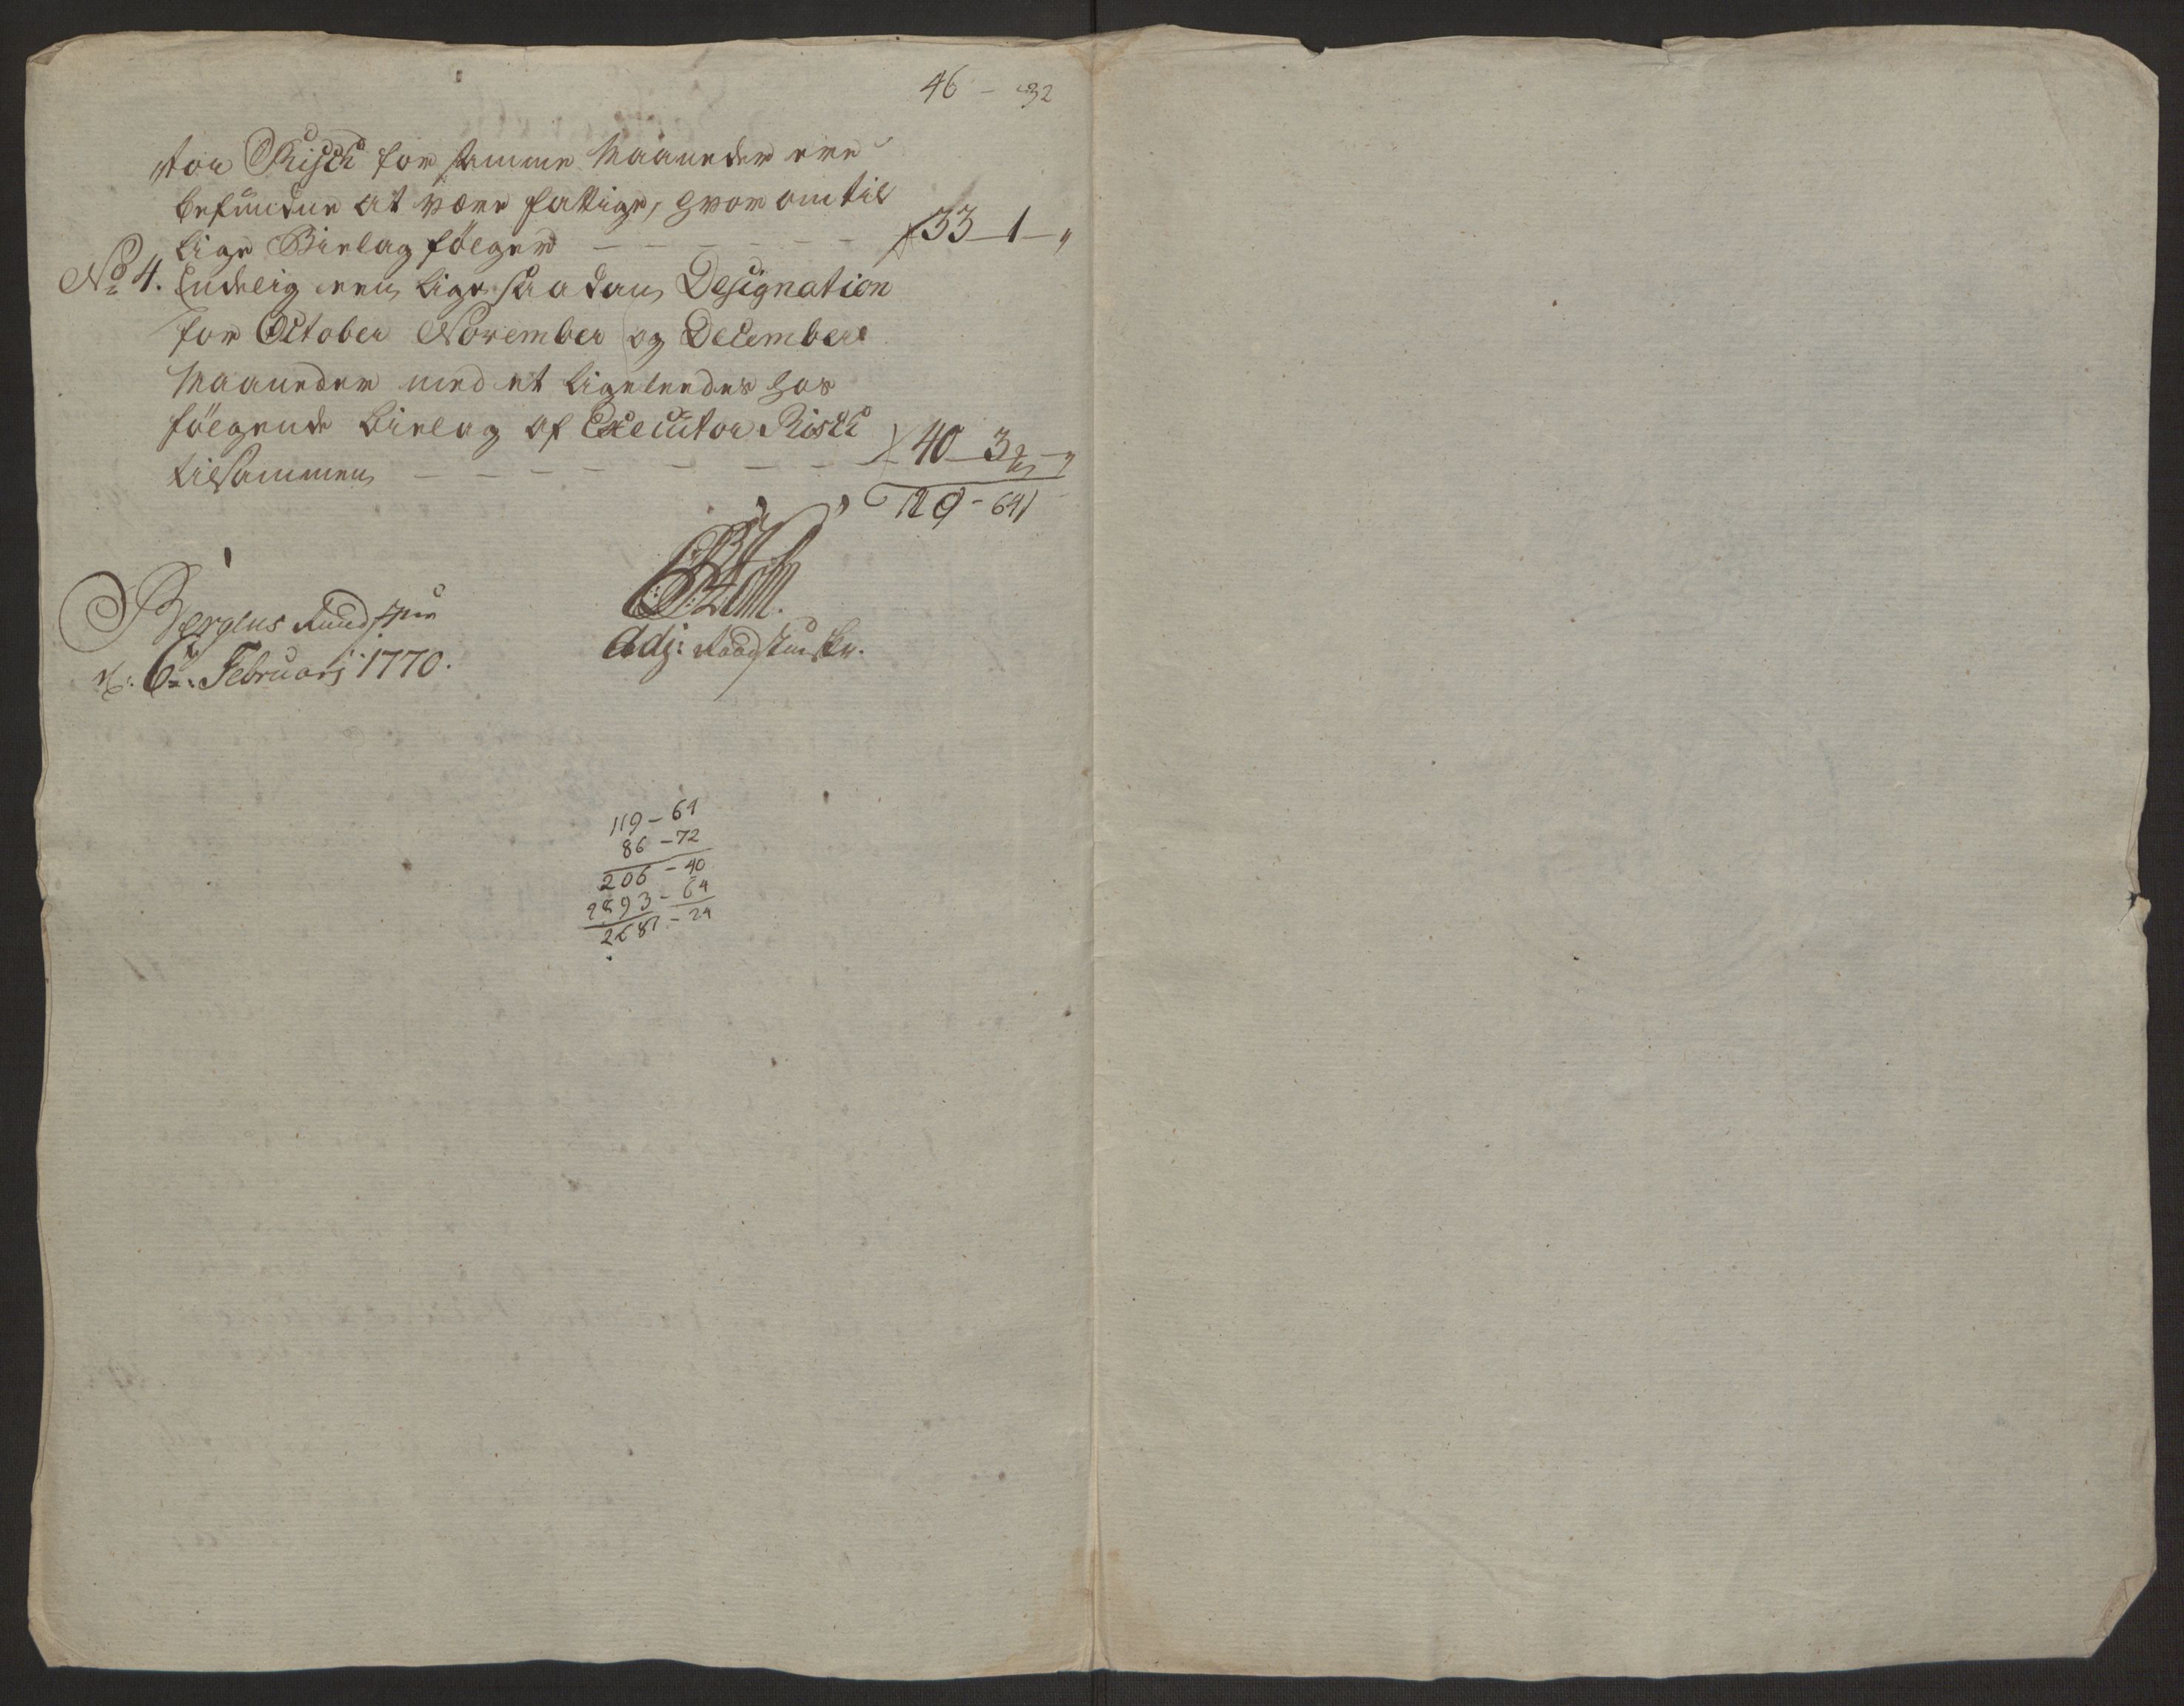 46 - 32
tor Risch for samme Maaneder ere
befundne at være fattige, hvor om til
lige Bielag følger — — — — — — 33 — 1 — "
No 4. Endelig een lige saadan Designation
for October November og December
Maaneder med et ligeleedes hos
følgende bielag af Executor Risch
tilsammen — — — — — — — 40 — 3 — "
119 - 64
Bergens Raadstue
d: 6te Februarj 1770.
Adj: Raadstueskr.
119 - 64
86 - 72
206 - 40
2893 - 64
2687 - 24